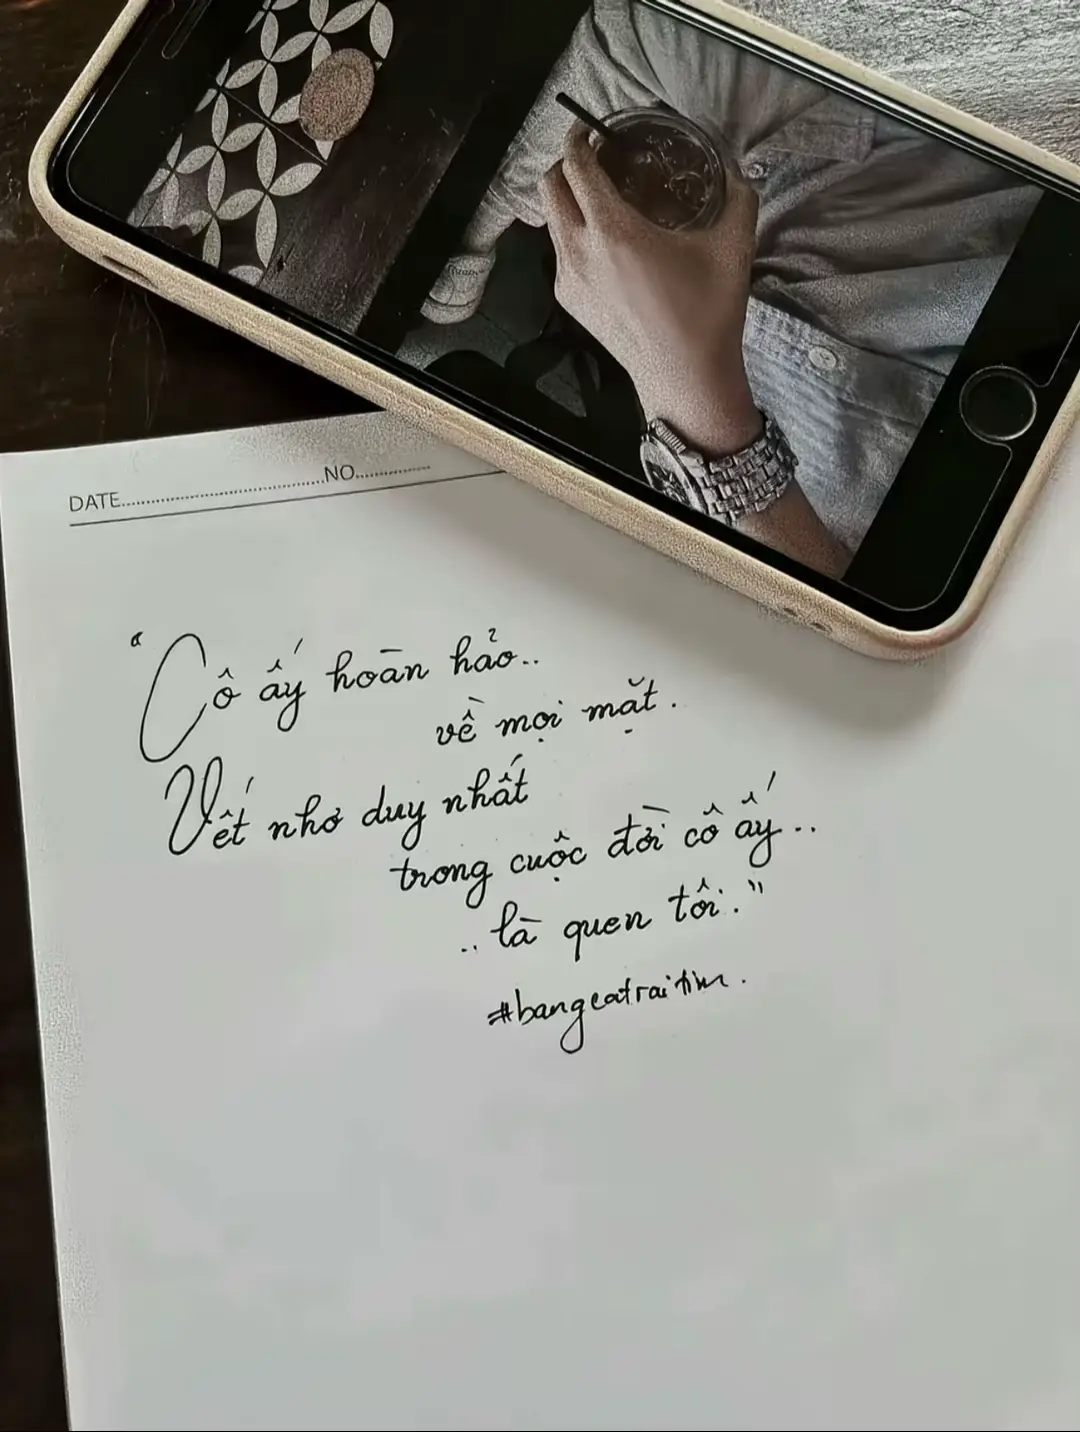 DATE................................NO................
"Cô ấy hoàn hảo..
về mọi mặt.
Vết nhơ duy nhất
trong cuộc đời cô ấy..
..là quen tôi."
#bangcatraitim.